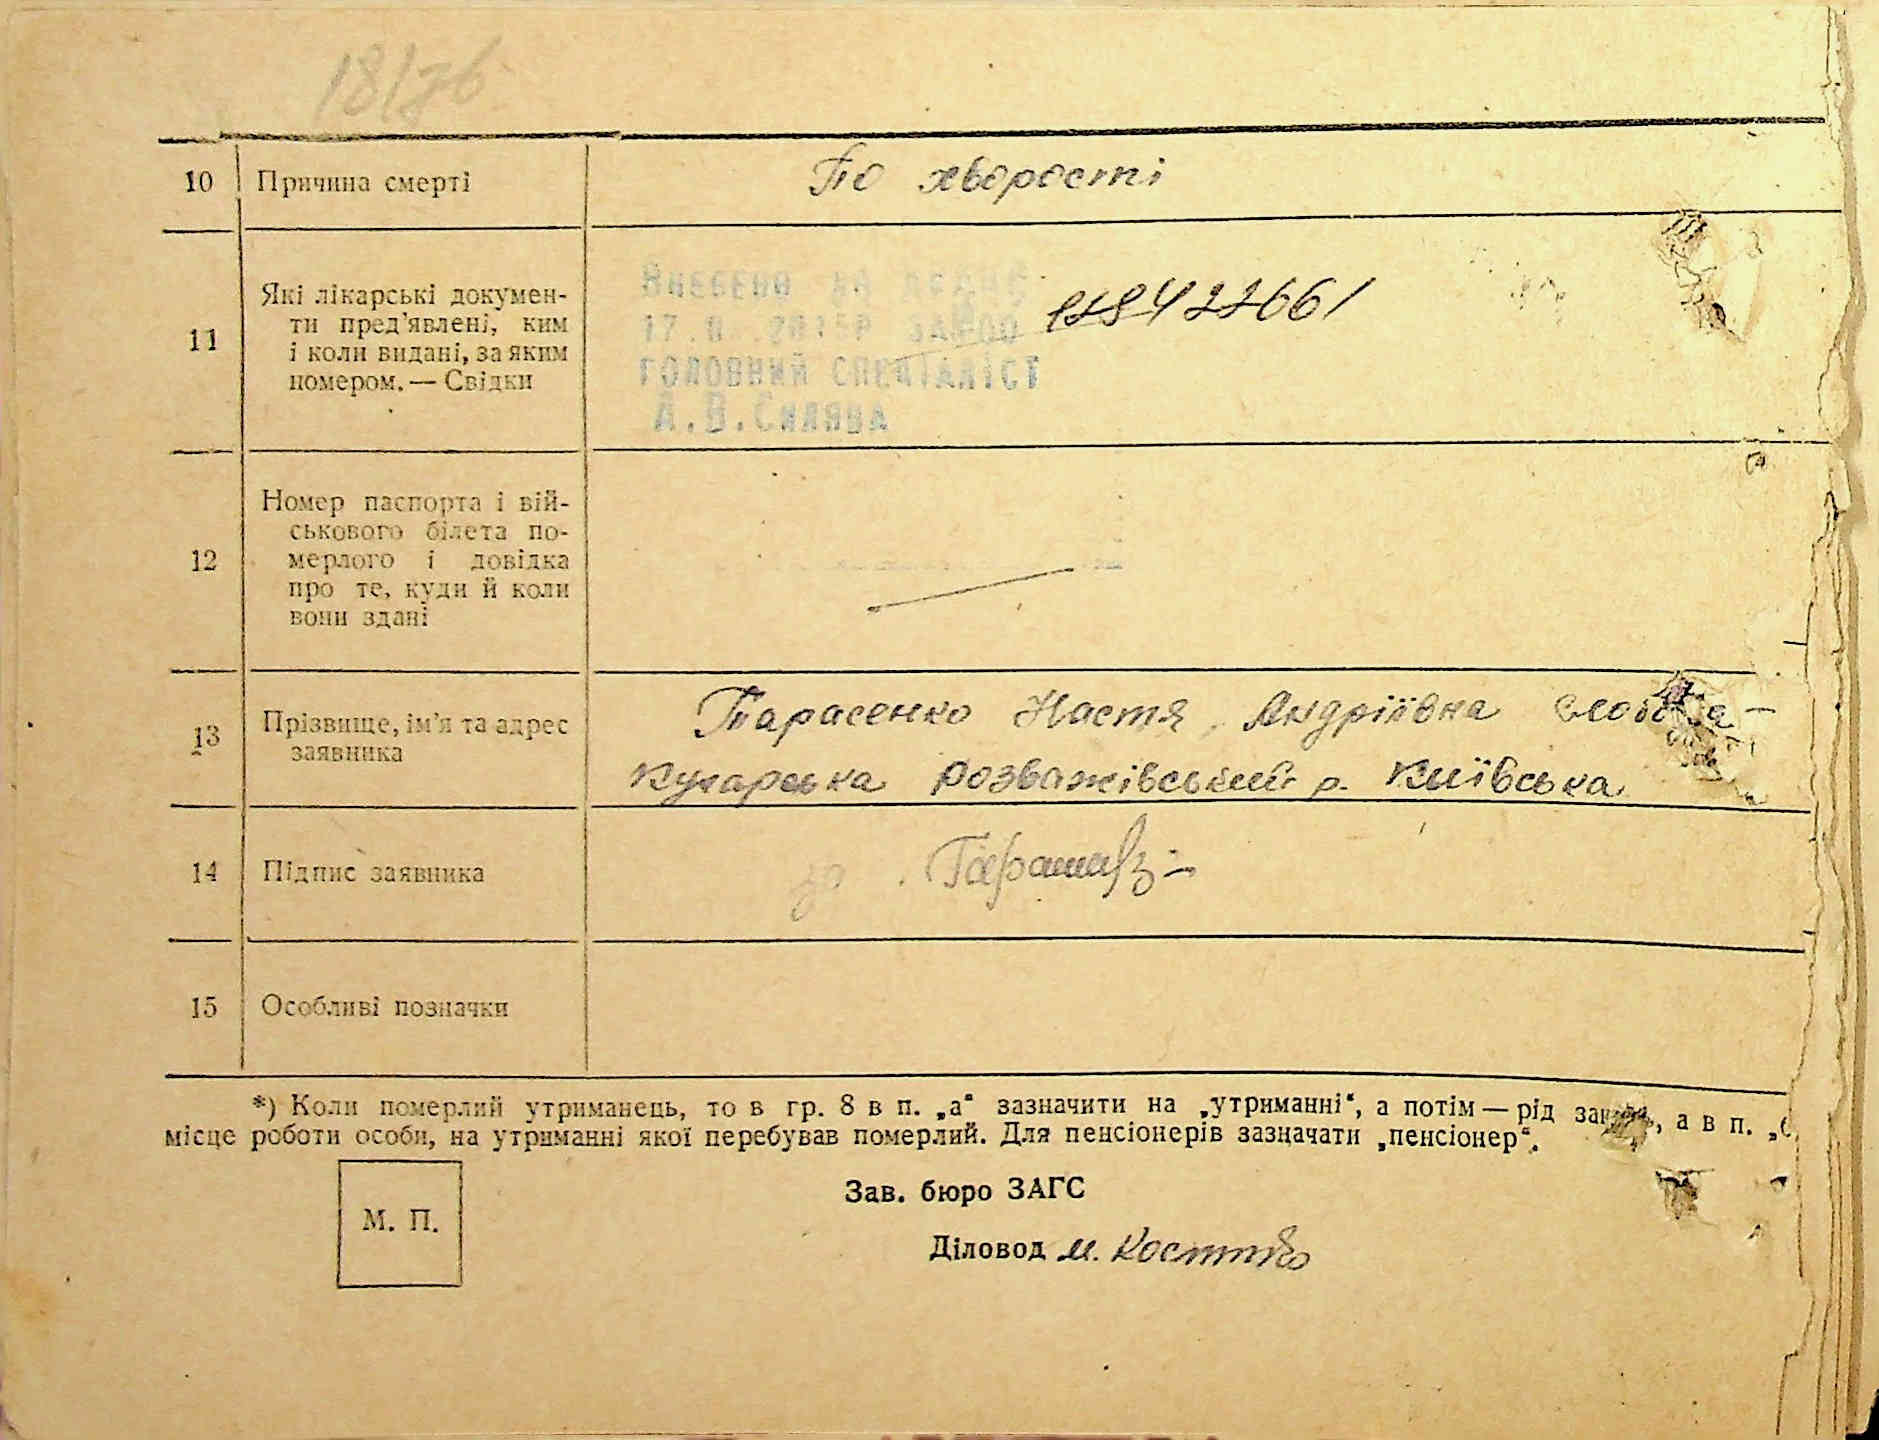 10 Причина смерті По хворості
11 Які лікарські докумен-
ти пред’явлені, ким
і коли видані, за яким
номером. — Свідки
Внесено на
17.
ГОЛОВНИЙ СПЕЦІАЛІСТ
А.В.
12 Номер паспорта і вій-
ськового білета по-
мерлого і довідка
про те, куди й коли
вони здані
13 Прізвище, ім’я та адрес
заявника
Тарасенко Настя Андріївна слобода-
Кухарська Розважівський р. Київська
14 Підпис заявника за
15 Особливі позначки
*) Коли померлий утриманець, то в гр. 8 в п. „а“ зазначити на „утриманні“, а потім — рід , а в п.
місце роботи особи, на утриманні якої перебував померлий. Для пенсіонерів зазначати „пенсіонер“.
М. П.
Зав. бюро ЗАГС
Діловод М.